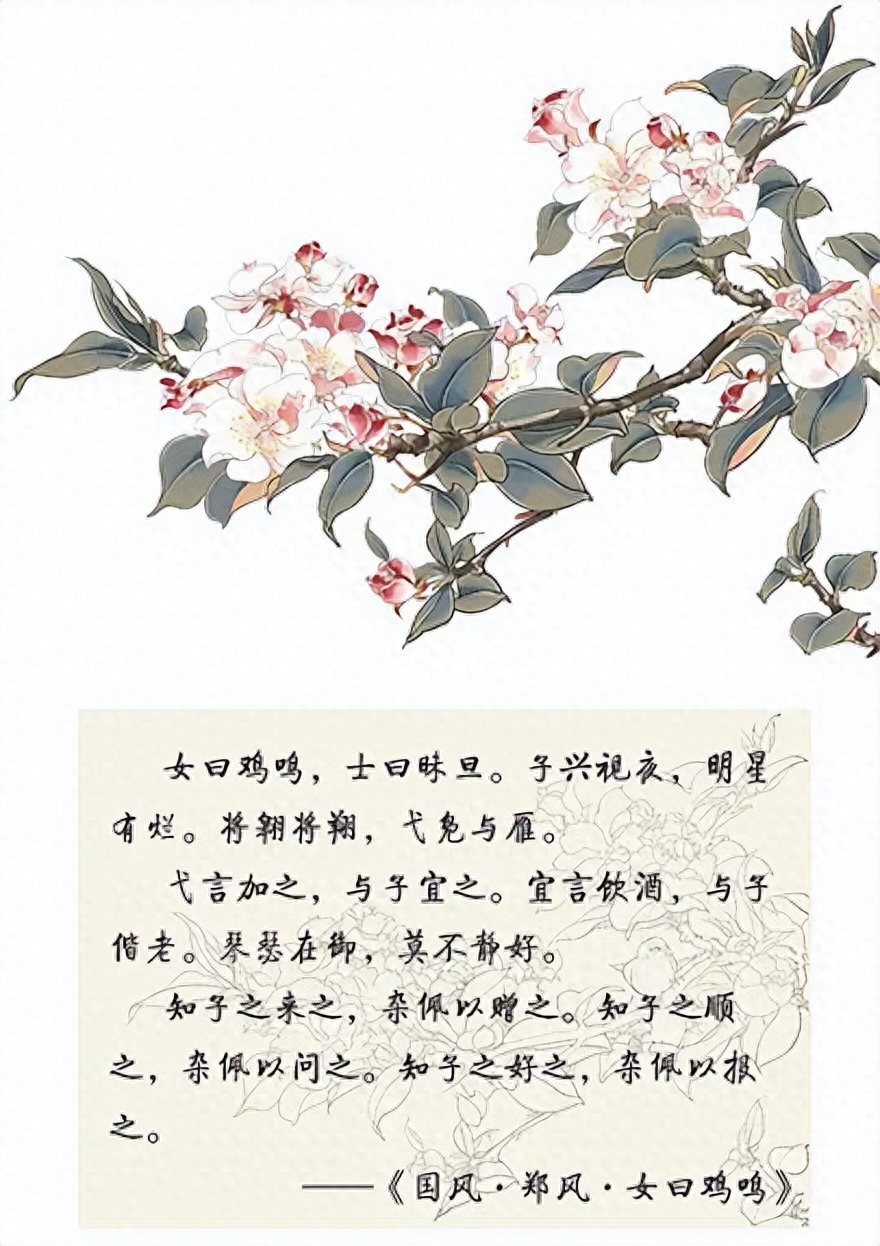 女曰鸡鸣，士曰昧旦。子兴视夜，明星
有烂。将翱将翔，弋凫与雁。
弋言加之，与子宜之。宜言饮酒，与子
偕老。琴瑟在御，莫不静好。
知子之来之，杂佩以赠之。知子之顺
之，杂佩以问之。知子之好之，杂佩以报
之。
——《国风·郑风·女曰鸡鸣》